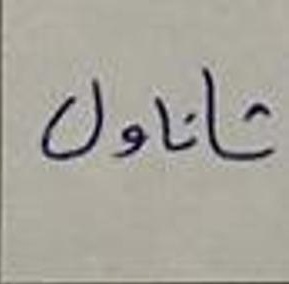 شاناول